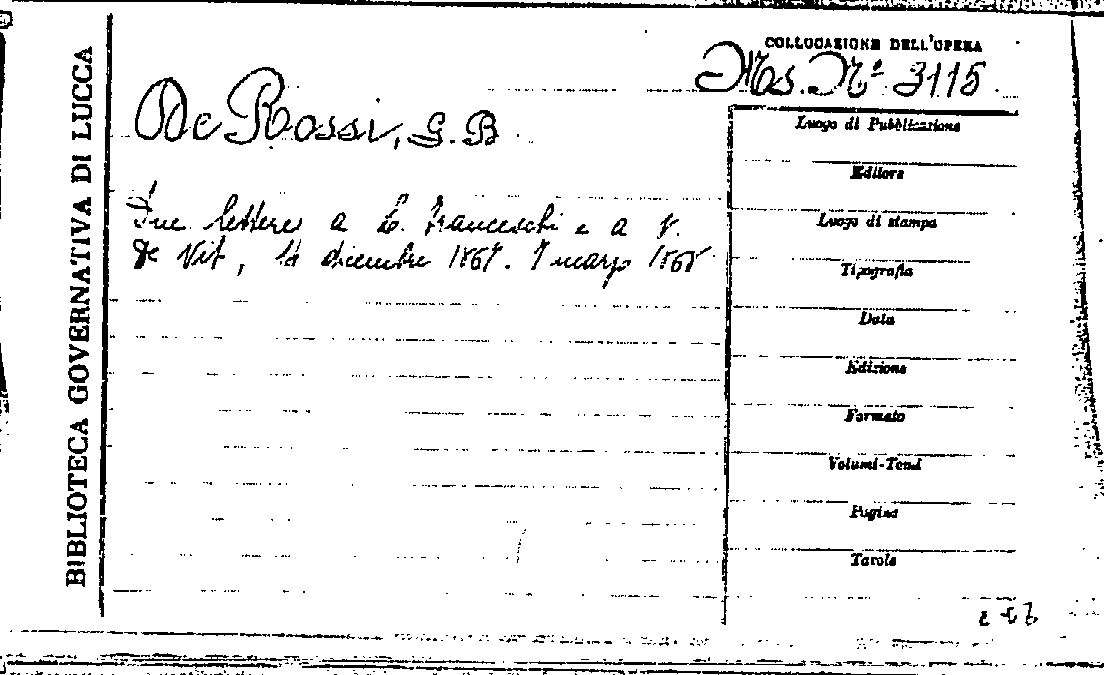 BIBLIOTECA GOVERNATIVA DI LUCCA
COLLOCAZIONE DELL'OPERA
Ms. Nº 3115
De Rossi, G. B
Due lettere a L. Franceschi e a V.
De Vit, 14 dicembre 1867. 7 marzo 1868
Luogo di Pubblicazione
Editore
Luogo di stampa
Tipografia
Data
Edizione
Formato
Volumi-Tomi
Pagine
Tavole